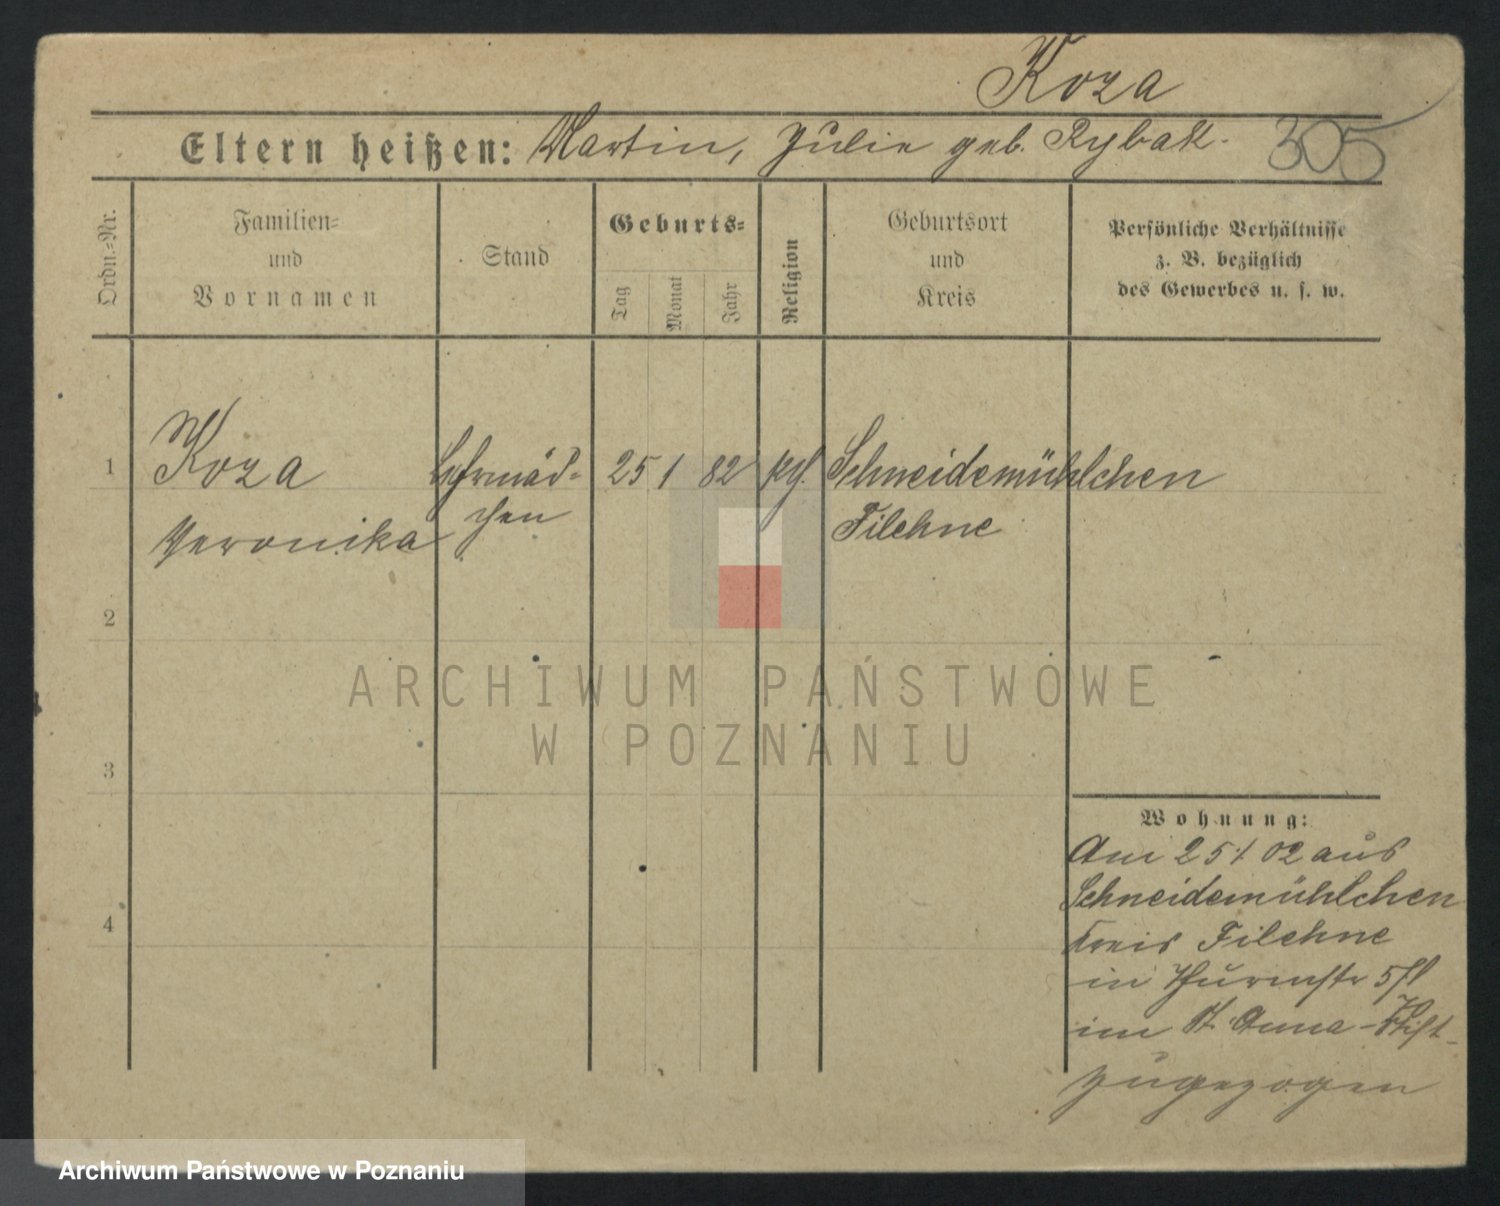 Koza
Eltern heißen: Martin, Julie geb. Rybak.
305
Ordn.=Nr.
Familien=
und
Vornamen
Stand
Geburts=
Tag
Monat
Jahr
Religion
Geburtsort
und
Kreis
Persönliche Verhältnisse
z. B. bezüglich
des Gewerbes u. s. w.
1
Koza
Veronika
Lehrmäd=
chen
25 1 82
Schneidemühlchen
Filehne
2
3
4
ARCHIWUM PAŃSTWOWE
W POZNANIU
Wohnung:
Am 25/1 02 aus
Schneidemühlchen
Kreis Filehne
in Thurmstr
im St. Anna-Stift
zugezogen
Archiwum Państwowe w Poznaniu